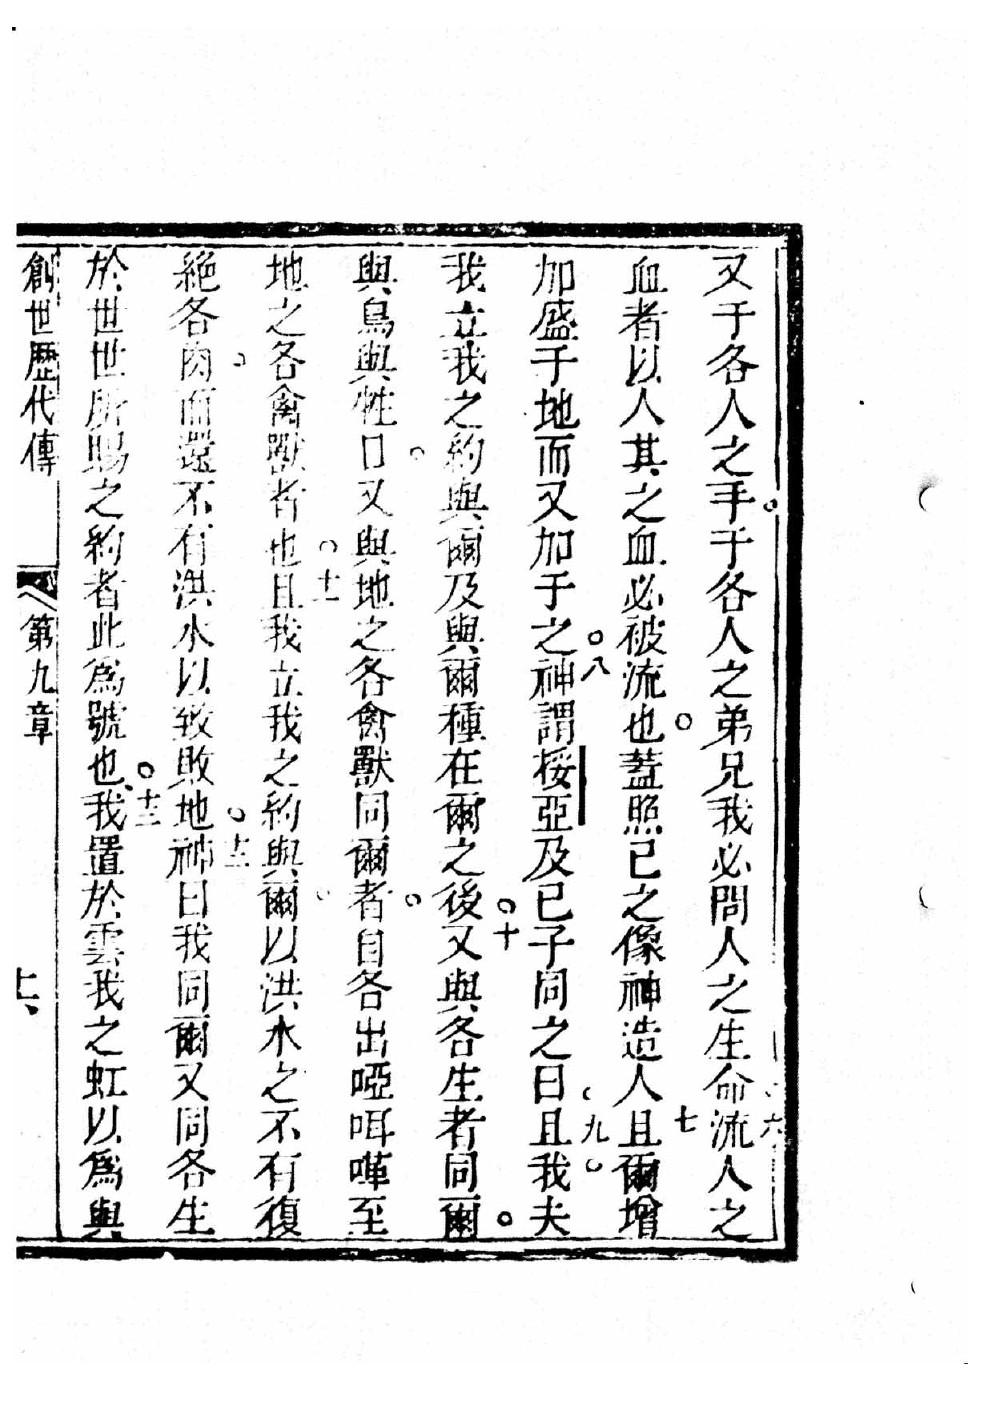 又于各人之手于各人之弟兄我必問人之生命六流人之
血者以人其之血必被流也蓋照己之像神造人七且爾增
加盛于地而又加于之八神謂挼亞及己子同之曰九且我夫
我立我之約與爾及與爾種在爾之後十又與各生者同爾
與鳥與牲口又與地之各禽獸同爾者自各出啞咡嗶至
地之各禽獸者也十一且我立我之約與爾以洪水之不有復
絕各肉而還不有洪水以致敗地十二神曰我同爾又同各生
於世世所賜之約者此為號也十三我置於雲我之虹以為與
創世歷代傳 第九章